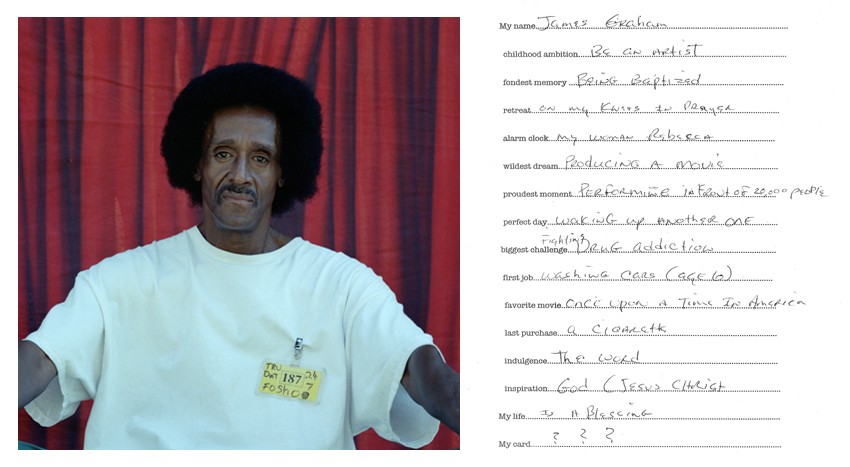 TRU 24
DAT 187 7
FOSHO
My name James Graham
childhood ambition BE an ARTIST
fondest memory BEING Baptized
retreat on my Knees In PRAYER
alarm clock my woman Rebecca
wildest dream PRODUCING A movie
proudest moment PERFORMING in Front of 20,000 people
perfect day WAKING up ANOTHER ONE
Fighting
biggest challenge DRUG addiction
first job washing CARS (age 6)
favorite movie Once upon A Time In America
last purchase a CIGARette
indulgence The word
inspiration God (Jesus Christ
My life Is A Blessing
My card ? ? ?